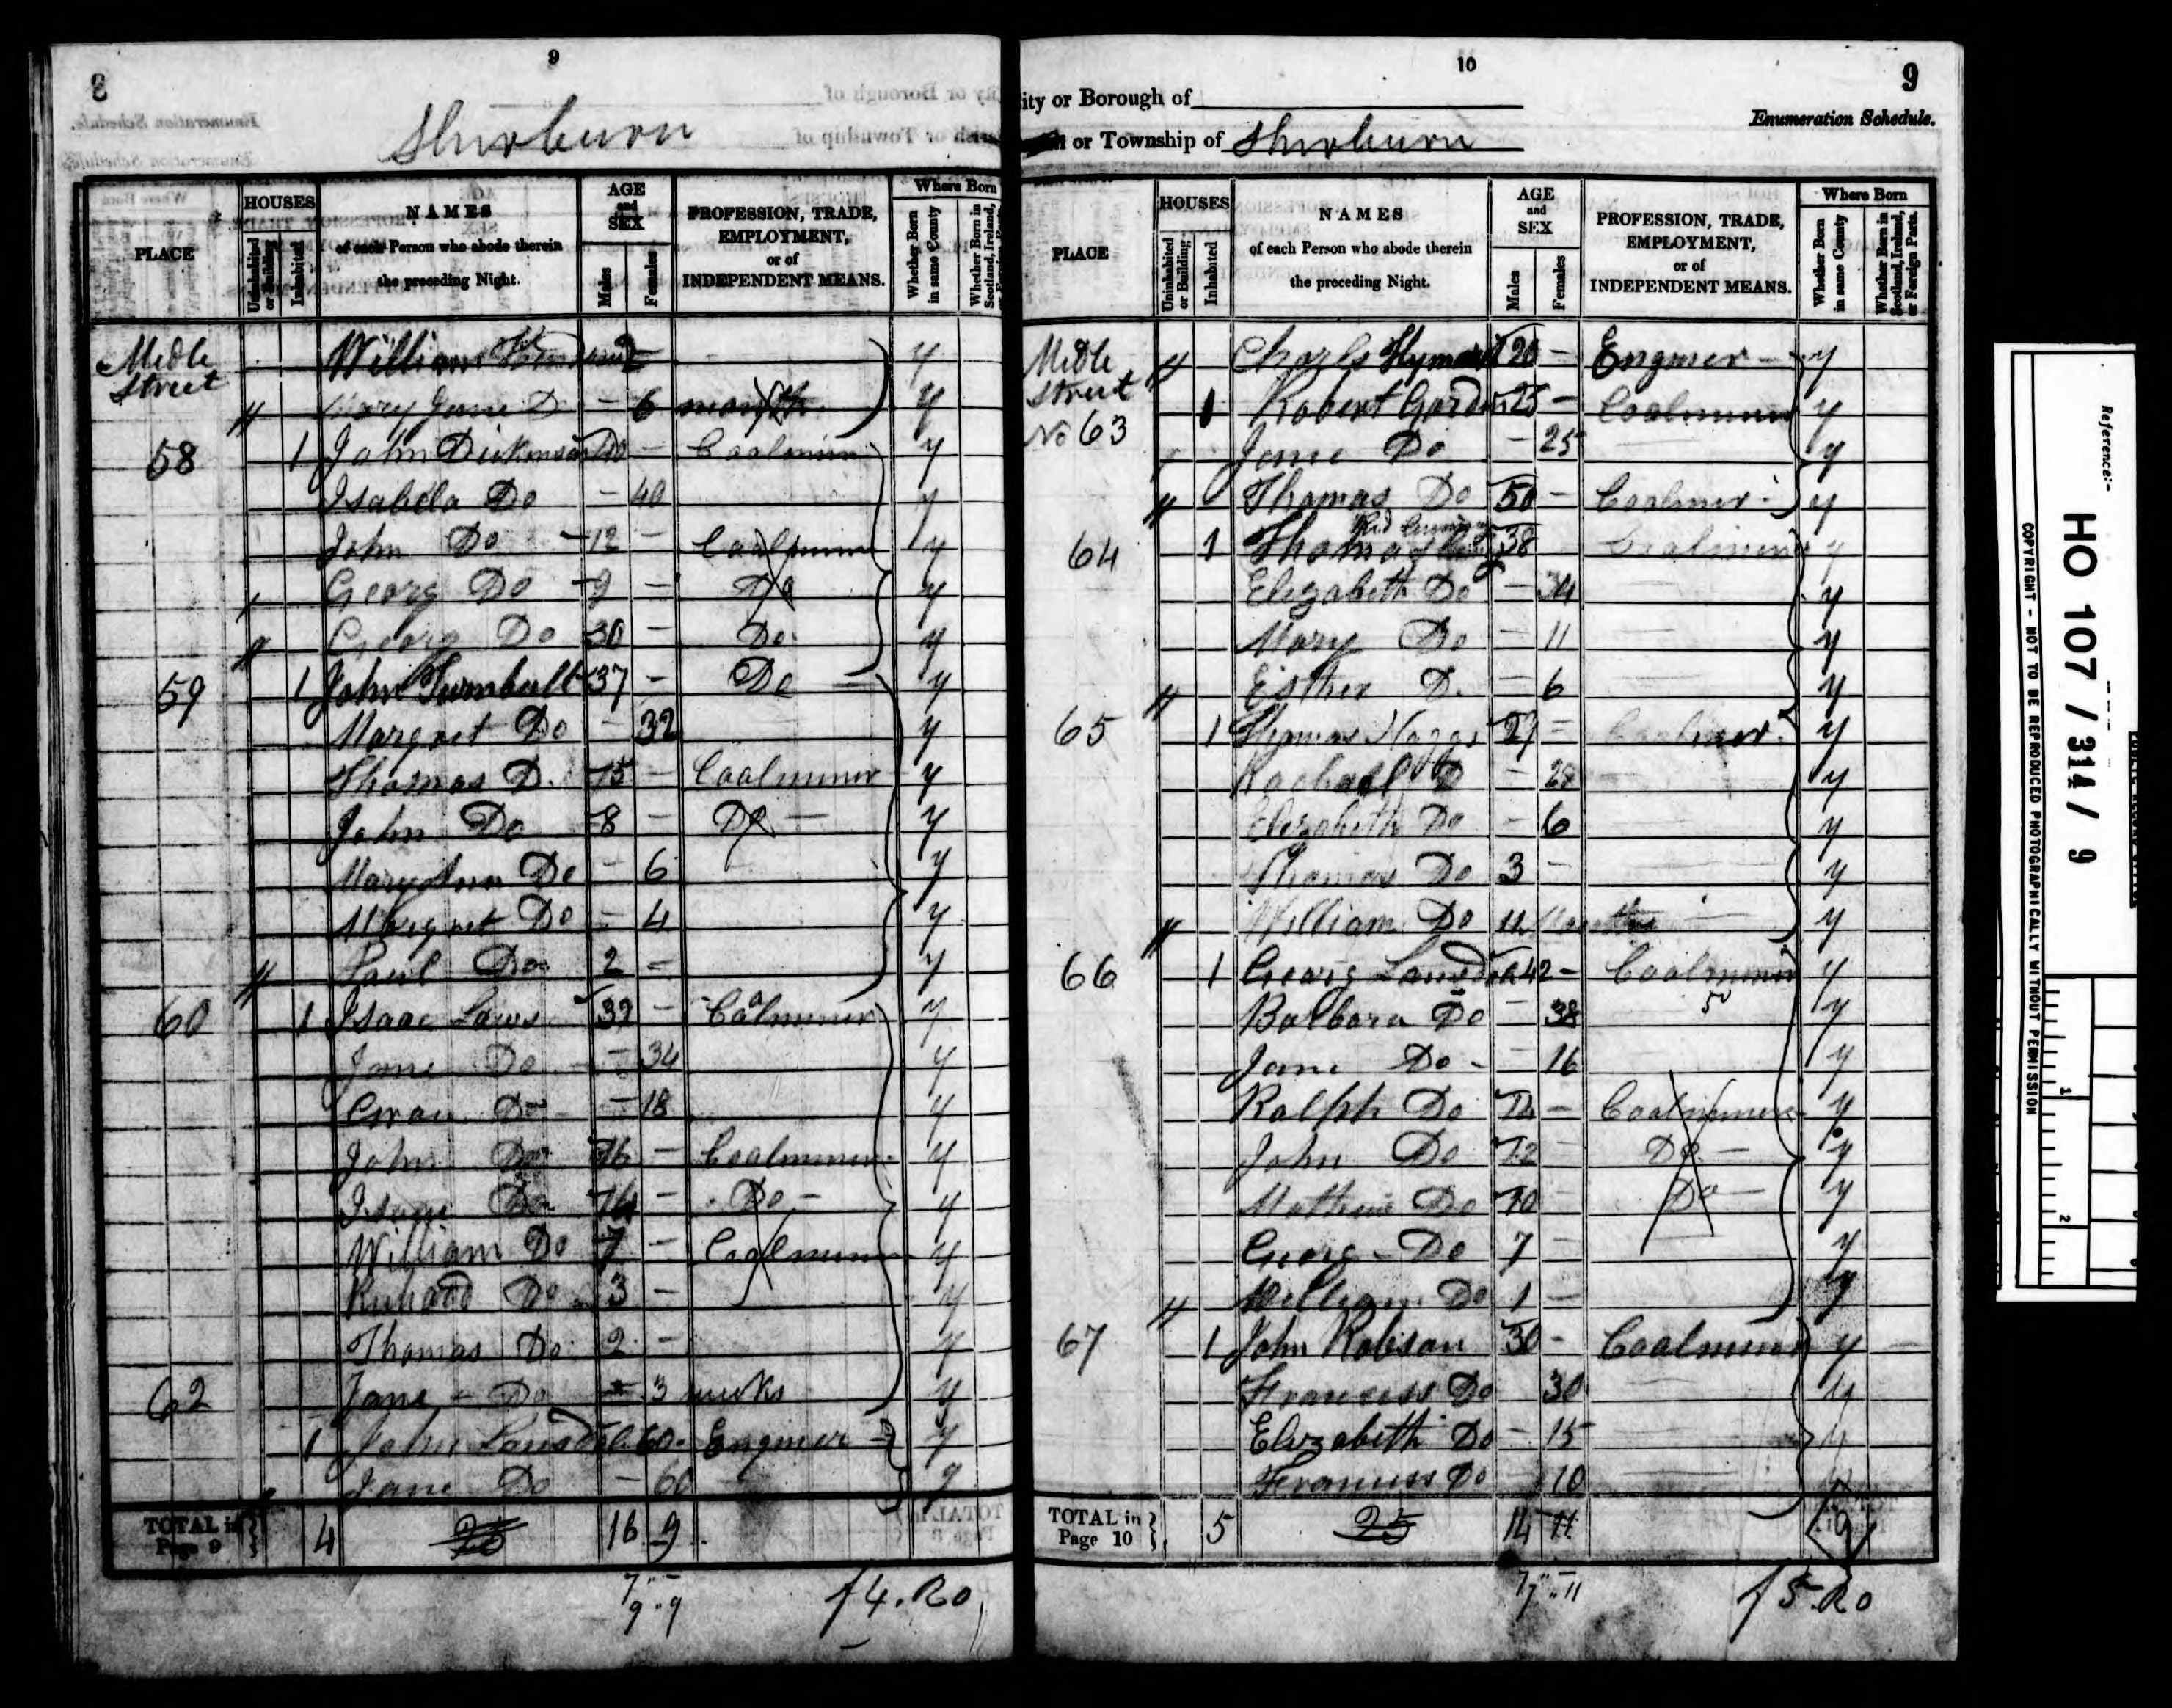 9
8
Shirburn
PLACE
HOUSES
Uninhabited or Building
Inhabited
NAMES
of each Person who abode therein
the preceding Night.
AGE
and
SEX
Males
Females
PROFESSION, TRADE,
EMPLOYMENT,
or of
INDEPENDENT MEANS.
Where Born
Whether Born in same County
Whether Born in Scotland, Ireland,
Midle William 2 y
Street
Mary Jane D - 6 month y
58 1 John Dickinson 40 - Coalminer y
Isabella Do - 40 y
John Do - 12 - Coalminer y
Georg Do 9 - Do y
Georg Do 30 - Do y
59 1 John Turnbull 37 - Do y
Margret Do - 32 y
Thomas D. 15 - Coalminer y
John Do 8 - Do - y
Mary Ann Do - 6 y
Margret Do - 4 y
Do 2 - y
60 1 Isaac Laws - Coalminer y
Jane Do - 34 y
Do - 18 y
John Do 16 - Coalminer y
Do 14 - Do - y
William Do 7 - Coalminer y
Richard Do 3 - y
Thomas Do 2 - y
62 Jane - Do - 3 weeks y
1 John 60 - Enginer y
Jane Do - 60 y
TOTAL in
Page 9 4 25 16 9
7 -
9 . 9 f 4. Ro
10
9
ity or Borough of
Enumeration Schedule.
or Township of Shirburn
PLACE
HOUSES
Uninhabited or Building
Inhabited
NAMES
of each Person who abode therein
the preceding Night.
AGE
and
SEX
Males
Females
PROFESSION, TRADE,
EMPLOYMENT,
or of
INDEPENDENT MEANS.
Where Born
Whether Born in same County
Whether Born in Scotland, Ireland, or Foreign Parts.
Midle Charls 20 - Enginer - y
Street 1 Robert 25 - Coalminer y
No 63 Jane Do - 25 y
Thomas Do 50 - Coalminer y
64 1 Thomas 38 Coalminer y
Elizabeth Do - 34 y
Mary Do - 11 y
Esther D. - 6 y
65 1 Thomas 27 - Coalminer y
Rachael D - 28 y
Elizabeth Do - 6 y
Thomas Do 3 - y
William Do 11 Months y
66 1 Georg 42 - Coalminer y
Barbara Do - 38 y
Jane Do - - 16 y
Ralph Do 14 - Coalminer y
John Do 12 Do - y
Mathew Do 10 - Do - y
Georg - Do 7 - y
William Do 1 - y
67 1 John Robson 30 - Coalminer y
Do 30 y
Elizabeth Do - 15 y
Do 10 y
TOTAL in
Page 10 5 25 14 11
f 5. Ro
Reference:-
HO 107 / 314 / 9
COPYRIGHT - NOT TO BE REPRODUCED PHOTOGRAPHICALLY WITHOUT PERMISSION
1
2